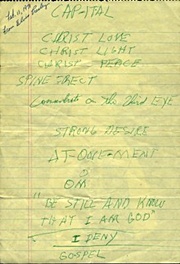 CAPITAL
CHRIST LOVE
CHRIST LIGHT
CHRIST PEACE
SPINE ERECT
Concentrate on the Third Eye
STRONG DESIRE
AT-ONE-MENT
OM
"BE STILL AND KNOW
THAT I AM GOD"
I DENY
GOSPEL